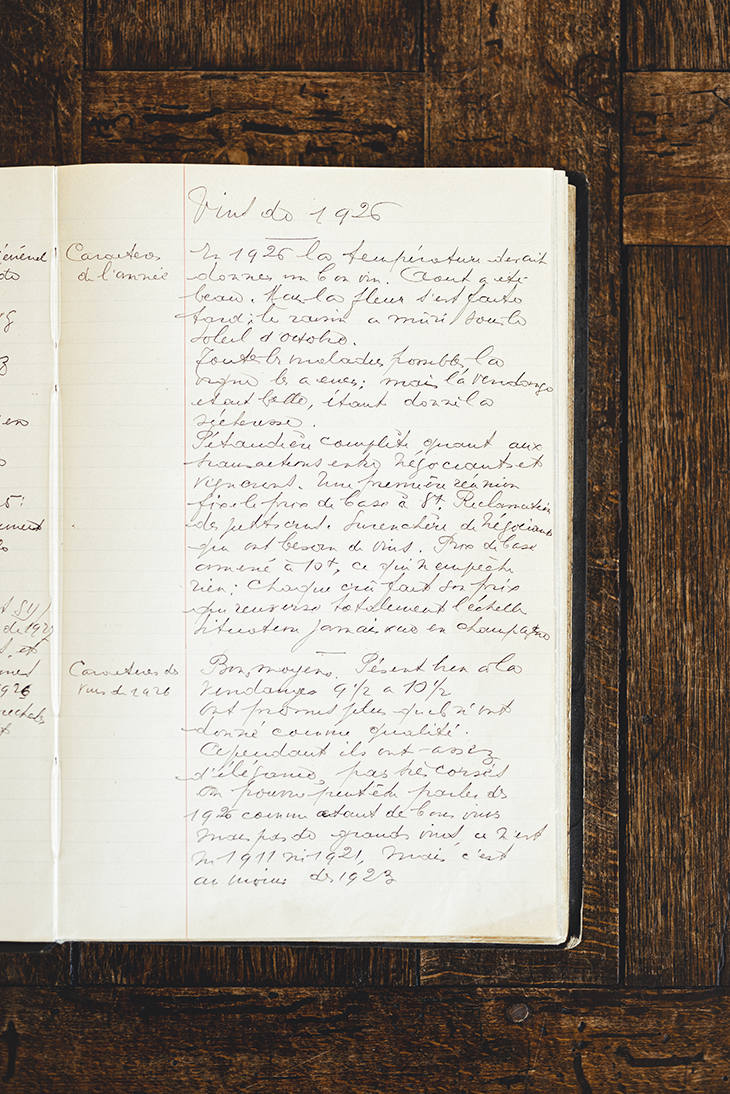 Vins de 1926
Caractères
de l'année
En 1926 la température devait
donner un bon vin. Aout a été
beau. Mais la fleur s'est faite
tard; le raisin a mûri sous le
soleil d'octobre.
Toutes les maladies possibles, la
vigne les a eues; mais la vendange
etait belle, étant donné la
sécheresse.
Pétaudière complète quant aux
transactions entre Négociants et
vignerons. Une première réunion
fixe le prix de base à 8f. Réclamation
des petits crus. Surenchère de Négociants
qui ont besoin de vins. Prix de base
amené à 10f, ce qui n'empêche
rien; chaque crû fait son prix
qui renverse totalement l'échelle
Situation jamais vue en champagne
Caractères des
vins de 1926
Bons, moyens. Pésent bien à la
vendanges 9 1/2 a 10 1/2
ont promis plus qu'ils n'ont
donné comme qualité.
Cependant ils ont assez
d'élégance, pas très corsés
on pourra peut être parler des
1926 comme étant de bons vins
mais pas de grands vins, ce n'est
ni 1911 ni 1921, mais c'est
au moins des 1923